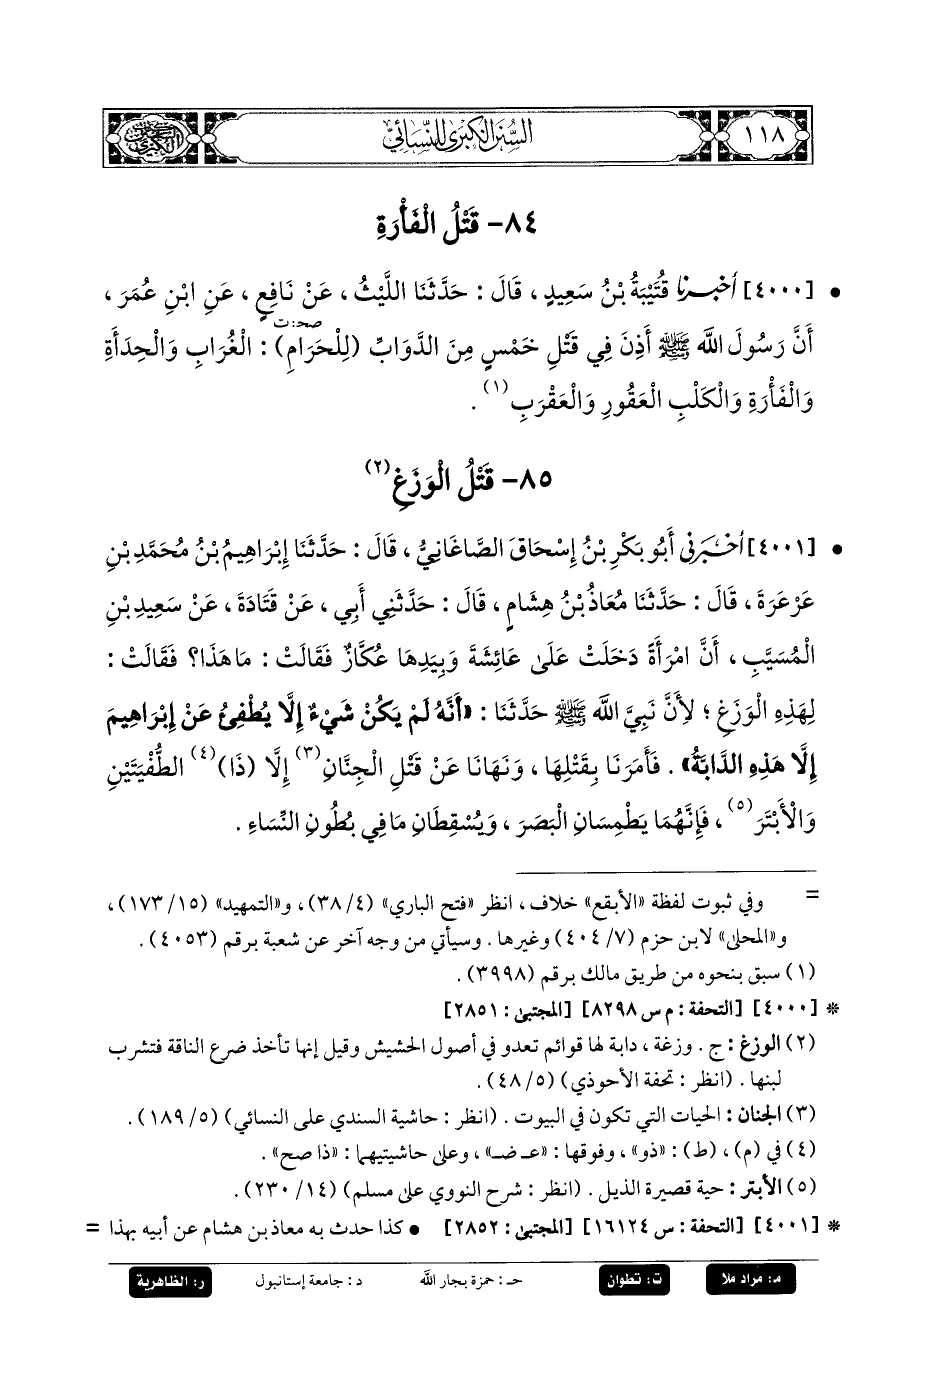 ١١٨
السنن الكبرى للنسائي
٨٤- قَتْلُ الْفَأْرَةِ
• [٤٠٠٠] أخبرنا قُتَيْبَةُ بْنُ سَعِيدٍ ، قَالَ : حَدَّثَنَا اللَّيْثُ ، عَنْ نَافِعٍ ، عَنِ ابْنِ عُمَرَ ،
أَنَّ رَسُولَ اللَّهِ ﷺ أَذِنَ فِي قَتْلِ خَمْسٍ مِنَ الدَّوَابِّ (لِلْحَرَامِ) : الْغُرَابِ وَالْحِدَأَةِ
صحـ: ت
وَالْفَأْرَةِ وَالْكَلْبِ الْعَقُورِ وَالْعَقْرَبِ (١) .
٨٥- قَتْلُ الْوَزَغِ (٢)
• [٤٠٠١] أَخْبَرَنِي أَبُو بَكْرِ بْنُ إِسْحَاقَ الصَّاغَانِيُّ ، قَالَ : حَدَّثَنَا إِبْرَاهِيمُ بْنُ مُحَمَّدِ بْنِ
عَرْعَرَةَ ، قَالَ : حَدَّثَنَا مُعَاذُ بْنُ هِشَامٍ ، قَالَ : حَدَّثَنِي أَبِي ، عَنْ قَتَادَةَ ، عَنْ سَعِيدِ بْنِ
الْمُسَيَّبِ ، أَنَّ امْرَأَةً دَخَلَتْ عَلَى عَائِشَةَ وَبِيَدِهَا عُكَّازٌ فَقَالَتْ : مَا هَذَا؟ فَقَالَتْ :
لِهَذِهِ الْوَزَغِ ؛ لِأَنَّ نَبِيَّ اللَّهِ ﷺ حَدَّثَنَا : «أَنَّهُ لَمْ يَكُنْ شَيْءٌ إِلَّا يُطْفِئُ عَنْ إِبْرَاهِيمَ
إِلَّا هَذِهِ الدَّابَّةُ» . فَأَمَرَنَا بِقَتْلِهَا ، وَنَهَانَا عَنْ قَتْلِ الْجِنَّانِ (٣) إِلَّا (ذَا) (٤) الطُّفْيَتَيْنِ
وَالْأَبْتَرَ (٥) ، فَإِنَّهُمَا يَطْمِسَانِ الْبَصَرَ ، وَيُسْقِطَانِ مَا فِي بُطُونِ النِّسَاءِ .
= وفي ثبوت لفظة «الأبقع» خلاف ، انظر «فتح الباري» (٤/ ٣٨)، و«التمهيد» (١٥/ ١٧٣)،
و«المحلى» لابن حزم (٧/ ٤٠٤) وغيرها . وسيأتي من وجه آخر عن شعبة برقم (٤٠٥٣) .
(١) سبق بنحوه من طريق مالك برقم (٣٩٩٨) .
* [٤٠٠٠] [التحفة : م س ٨٢٩٨] [المجتبى : ٢٨٥١]
(٢) الوزغ : ج . وزغة ، دابة لها قوائم تعدو في أصول الحشيش وقيل إنها تأخذ ضرع الناقة فتشرب
لبنها . (انظر : تحفة الأحوذي) (٥/ ٤٨) .
(٣) الجنان : الحيات التي تكون في البيوت . (انظر : حاشية السندي على النسائي) (٥/ ١٨٩) .
(٤) في (م) ، (ط) : «ذو» ، وفوقها : «عـ ضـ» ، وعلى حاشيتيهما : «ذا صح» .
(٥) الأبتر : حية قصيرة الذيل . (انظر : شرح النووي على مسلم) (١٤/ ٢٣٠) .
* [٤٠٠١] [التحفة : س ١٦١٢٤] [المجتبى : ٢٨٥٢] • كذا حدث به معاذ بن هشام عن أبيه بهذا =
مـ: مراد ملا ت: تطوان حـ: حمزة بجار الله د: جامعة إستانبول ر: الظاهرية